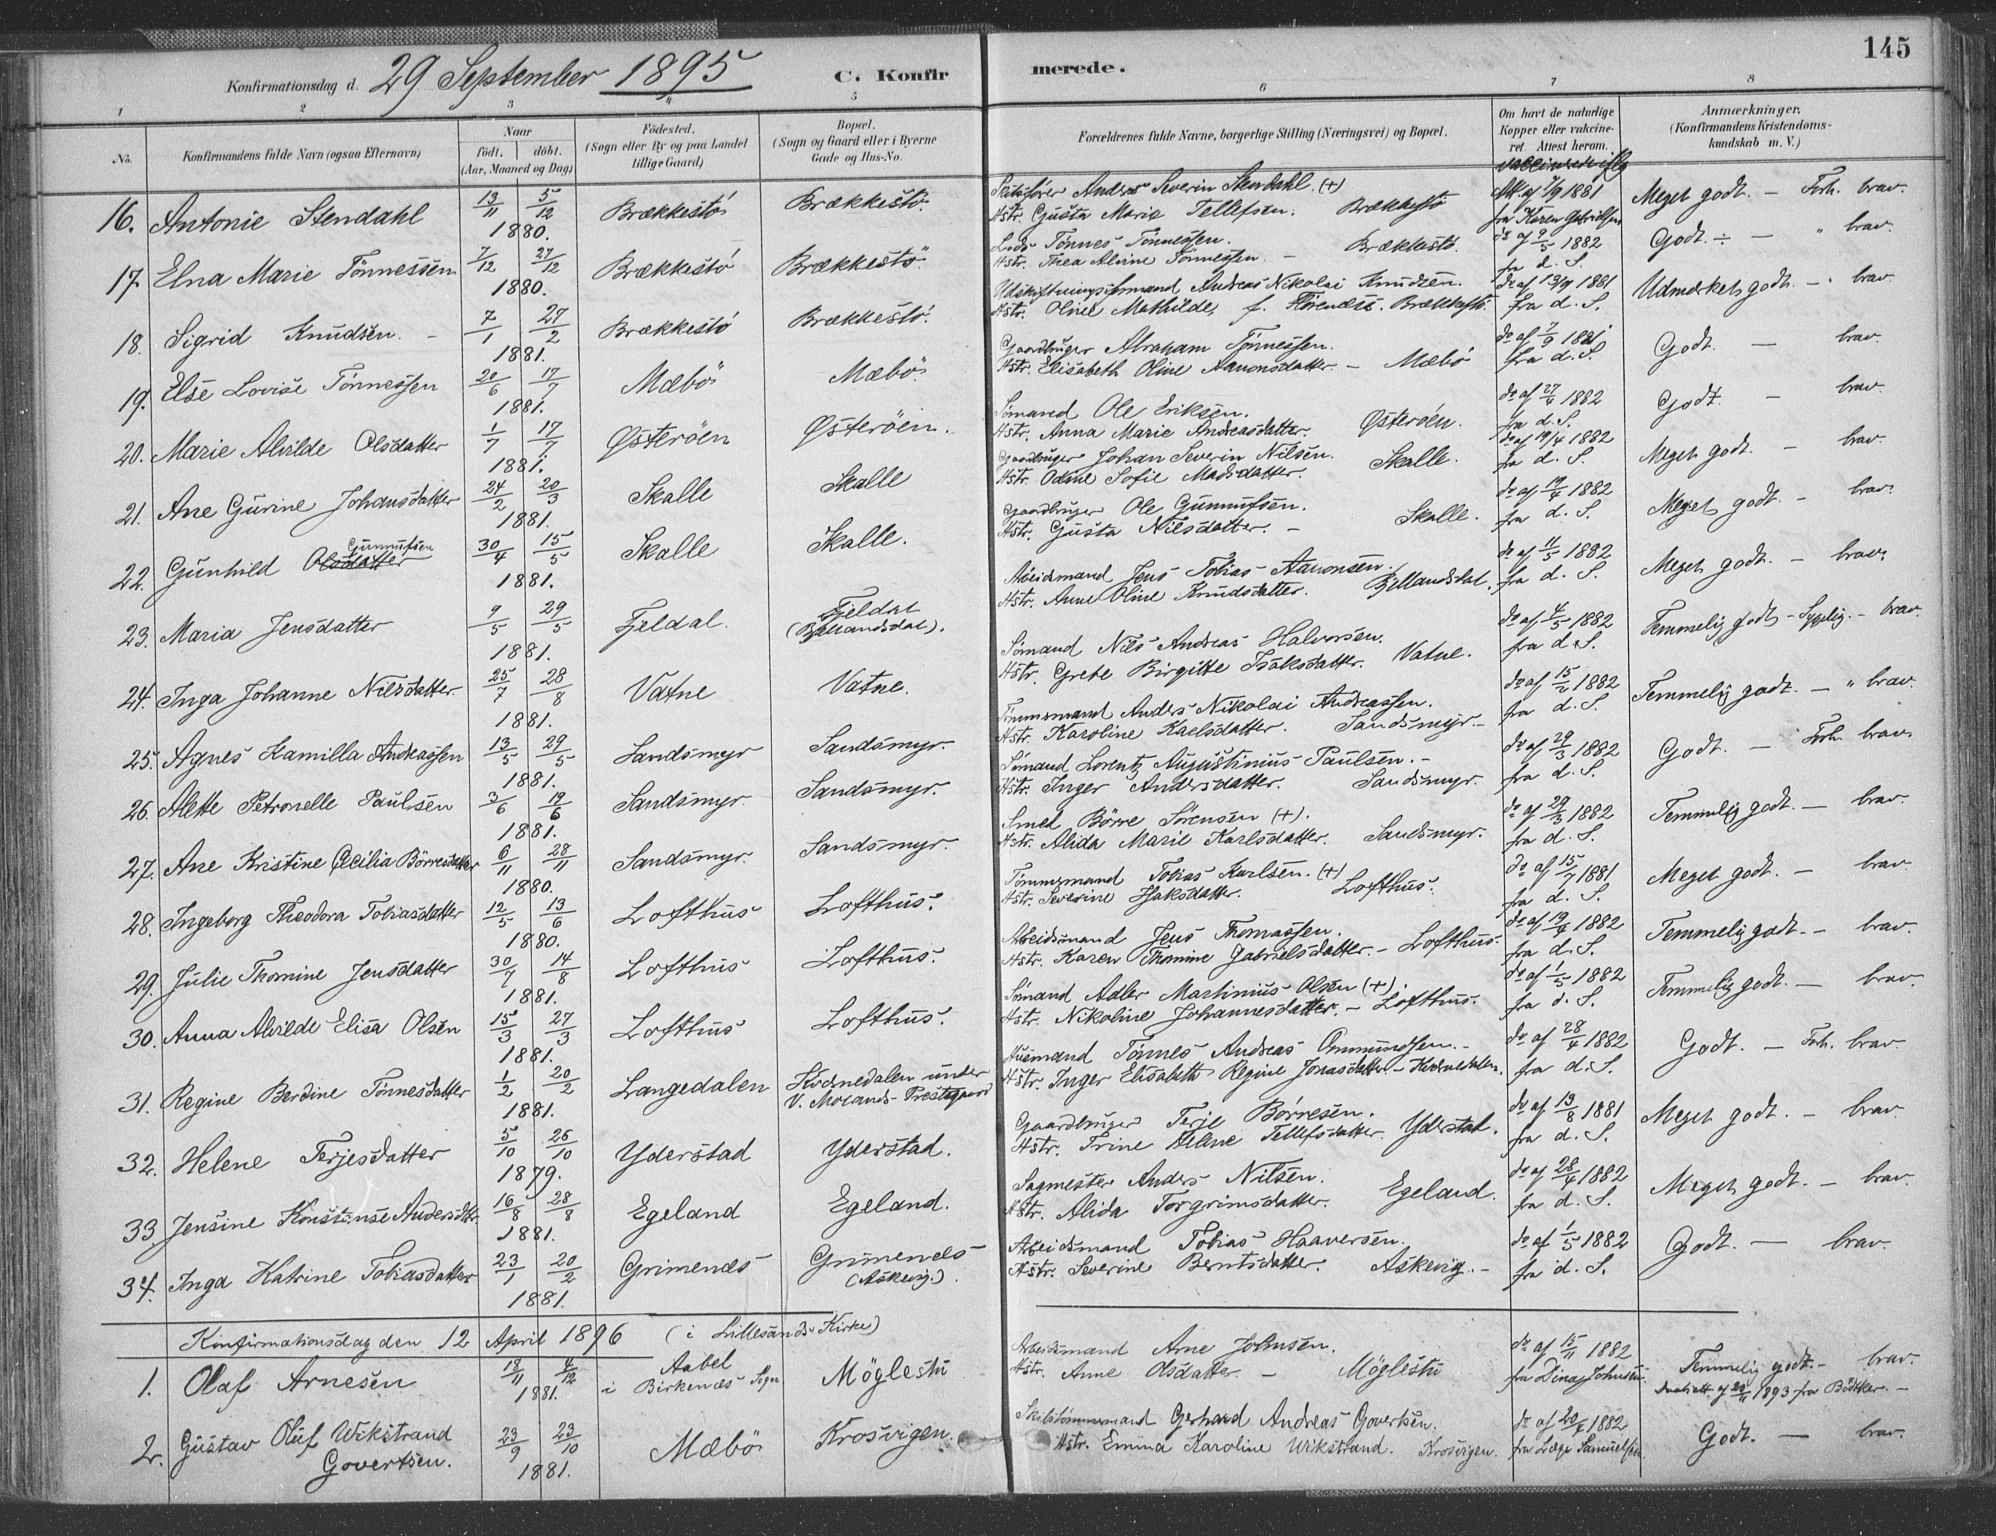 145
Konfirmationsdag d. 29 September 1895
C. Konfirmerede.
1 2 3 " 5 6 7 8
No. Konfirmandens fulde Navn (ogsaa Efternavn) Naar født. døbt. (Aar, Maaned og Dag) Fødested. (Sogn eller By og paa Landet tillige Gaard) Bopæl. (Sogn og Gaard eller i Byerne Gade og Hus-No. Forældrenes fulde Navne, borgerlige Stilling (Næringsvei) og Bopæl. Om havt de naturlige Kopper eller vakcineret. Attest herom. Anmærkninger. (Konfirmandens Kristendomskundskab m. V.)
16. Antonie Stendahl 13/11 5/12 1880. Brækkestø Brækkestø. Anders Severin Stendahl (+) Hstr. Gusta Marie Tellefsen. Brækkestø 7/9 1881 fra Karen Gabrielsen Meget godt. — Forh. brav.
17. Elna Marie Tønnessen 7/12 27/12 1880. Brækkestø Brækkestø. Lods Tønnes Tønnessen. Hstr. Thea Alvine Tønnessen. — Brækkestø. do af 9/5 1882 fra d. S. Godt ÷ — " brav.
18. Sigrid Knudsen. — 7/1 27/2 1881. Brækkestø Brækkestø. Udskiftningsformand Andreas Nikolai Knudsen. Hstr. Oline Mathilde, f. Brækkestø. do af 13/9 1881 fra d. S. Udmerket godt. — " brav.
19. Else Lovise Tønnessen 20/6 17/7 1881. Mæbø Mæbø. Gaardbruger Abraham Tønnessen. Hstr. Elisabeth Oline Aanonsdatter. — Mæbø do af 7/9 1881 fra d. S. Godt. — brav.
20. Marie Alvilde Olsdatter 1/7 17/7 1881. Østerøen Østerøen. Sømand Ole Eriksen. Hstr. Anna Marie Andreasdatter. Østerøen. do af 27/4 1882 fra d. S. Godt. — brav.
21. Ane Gurine Johansdatter 24/2 20/3 1881. Skalle Skalle Gaardbruger Johan Severin Nilsen. Hstr. Odine Sofie Madsdatter. Skalle. do af 19/4 1882 fra d. S. Meget godt. — brav.
22. Gunhild Olsdatter Gunnufsen 30/4 15/5 1881. Skalle Skalle. Gaardbruger Ole Gunnufsen. Hstr. Gusta Nilsdatter. — Skalle. do af 19/4 1882 fra d. S. Meget godt. — brav.
23. Maria Jensdatter 9/5 29/5 1881. Fjeldal. Fjeldal (Bjellandsdal). Arbeidsmand Jens Tobias Aanonsen. Hstr. Anne Oline Knudsdatter. Bjellandsdal. do af 11/5 1882 fra d. S. Meget godt. — brav.
24. Inga Johanne Nilsdatter 25/7 28/8 1881. Vatne Vatne. Sømand Nils Andreas Halvorsen. Hstr. Grete Birgitte Isaksdatter. Vatne. do af 4/5 1882 fra d. S. Temmelig godt — Sygelig. — brav.
25. Agnes Kamilla Andreassen 13/5 29/5 1881. Sandsmyr Sandsmyr. Tømmermand Anders Nikolai Andreassen. Hstr. Karoline Kaelsdatter. Sandsmyr. — do af 15/2 1882 fra d. S. Temmelig godt. — " brav.
26. Alette Petronelle Paulsen 3/6 19/6 1881. Sandsmyr. Sandsmyr. Sømand Lorentz Augustinius Paulsen. — Hstr. Inger Andersdatter. Sandsmyr. do af 29/3 1882 fra d. S. Godt. — Forh. brav.
27. Ane Kristine Cecilia Børresdatter 6/11 28/11 1880. Sandsmyr. Sandsmyr. Smed Børre Sørensen (+). Hstr. Alida Marie Karlsdatter. Sandsmyr. do af 29/3 1882 fra d. S. Temmelig godt. — brav.
28. Ingeborg Theodora Tobiasdatter 12/5 13/6 1880. Lofthus Lofthus. Tømmermand Tobias Karlsen. (+) Hstr. Severine Isaksdatter. Lofthus. do af 15/7 1881 fra d. S. Meget godt. — brav.
29. Julie Thomine Jensdatter 30/7 14/8 1881. Lofthus Lofthus. Arbeidsmand Jens Thomassen. Hstr. Karen Thomine Gabrielsdatter. — Lofthus. do af 19/4 1882 fra d. S. Temmelig godt. — brav.
30. Anna Alvilde Elisa Olsen 15/3 27/3 1881. Lofthus Lofthus. Sømand Adler Martinius Olsen (+). Hstr. Nikoline Johannesdatter. — Lofthus. do af 1/5 1882 fra d. S. Temmelig godt. — brav.
31. Regine Berdine Tønnesdatter 1/2 20/2 1881. Langedalen Kvernedalen under V. Molands Prestegaard Husmand Tønnes Andreas Ommundsen. — Hstr. Inger Elisabeth Regine Jonasdatter — Kvernedalen. do af 28/4 1882 fra d. S. Godt. — Forh. brav.
32. Helene Terjesdatter 5/10 26/10 1879. Yderstad Yderstad. Gaardbruger Terje Børresen. Hstr. Trine Helene Tellefsdatter. Yderstad. do af 13/8 1881 fra d. S. Meget godt. — brav.
33. Jensine Konstanse Andersdtr. 16/8 28/8 1881. Egeland Egeland. Sagmester Anders Nilsen. Hstr. Alida Torgrimsdatter. Egeland. do af 28/4 1882 fra d. S. Meget godt. — brav.
34. Inga Katrine Tobiasdatter 23/1 20/2 1881. Grimenes Grimenes (Askevig.). Arbeidsmand Tobias Haaversen. Hstr. Severine Berntsdatter. Askevig. — do af 1/5 1882 fra d. S. Godt. — brav.
Konfirmationsdag den 12 April 1896 (i Lillesands Kirke)
1. Olaf Arnesen 13/11 4/12 1881. Aabel i Birkenes Sogn Møglestu Arbeidsmand Arne Johnsen. Hstr. Anne Olsdatter. — Møglestu do af 15/11 1882 fra Dina Johnsen Temmelig godt. — brav. 1893 fra Bødtker. —
2. Gustav Oluf Wikstrand Govertsen. 23/9 23/10 1881. Mæbø Krosvigen. Skibstømmermand Gerhard Andreas Govertsen. Hstr. Emma Karoline Wikstrand. Krosvigen. do af 20/9 1882 fra Læge Samuelsen Godt. — brav.